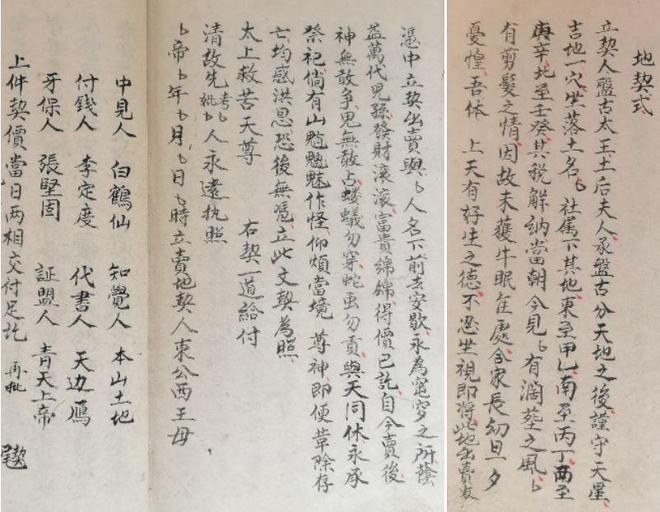 地契式
立契人盤古太王土后夫人承盤古分天地之後謹守天星
吉地一穴坐落土名〻社属下其地東至甲乙南至丙丁西至
庚辛北至壬癸其税解納當朝今見〻有濶塟之風〻
有剪髪之情因故未獲牛眠佳處合家長幼旦夕
憂惶吾体　上天有好生之德不忍坐視即將此地出賣
憑中立契出賣與〻人名下前去安歇永為窀穸之所蔭
益萬代兒孫發財滾滾富貴綿綿得價已訖自今賣後
神無敢争鬼無敢占蝼蟻勿穿蛇虫勿責與天同休永承
祭祀倘有山魈魍魅作怪仰煩當境　尊神即便革除存
亡均感洪恩恐後無憑立此文契為照
太上救苦天尊　　右契一道給付
清故先考妣〻人永遠执照
〻帝〻年〻月〻日〻時立賣地契人東公西王母
中見人　白鶴仙　知覺人　本山土地
付錢人　李定度　代書人　天边鴈
牙保人　張堅固　証盟人　青天上帝
上件契價當日两相交付足訖　再批